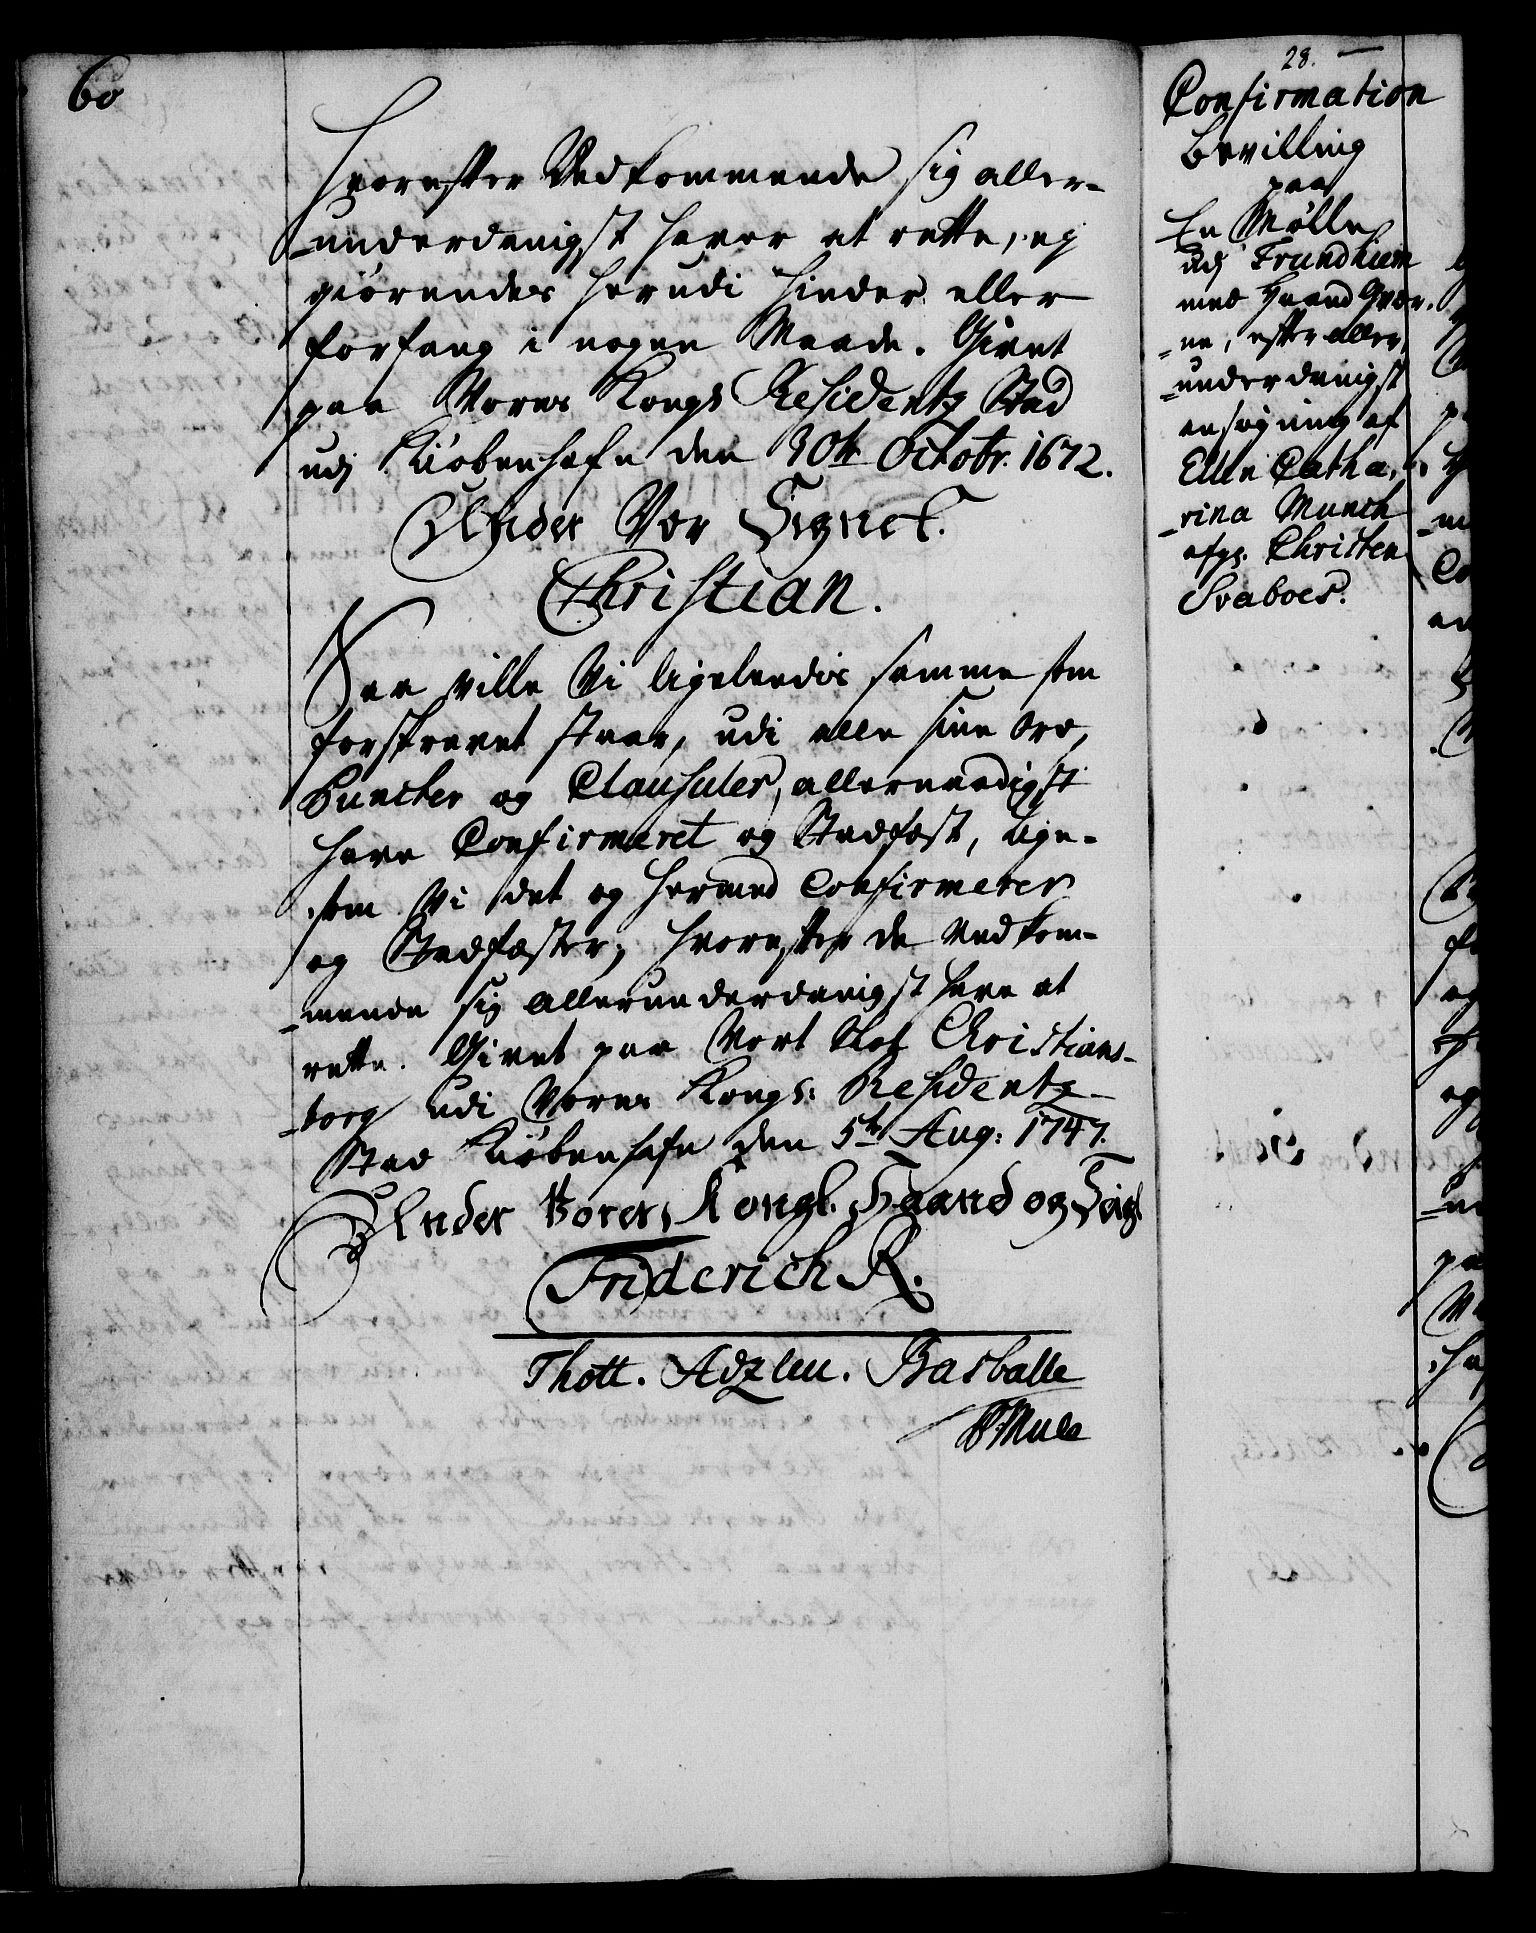 60
Hvorefter Vedkommende sig aller-
underdanigst haver at rette, ej
giørendes herudi Hinder eller
forfang i nogen Maade. Givet
paa Vores Kongl. Residentz Stad
udj Kiøbenhafn den 30te Octobr. 1672.
Under Vor Signet.
Christian.
Saa ville Vi ligeledis samme som
forskrevet staar, udi alle sine Ord,
Puncter og Clausuler, allernaadigst
have Confirmeret og Stadfæst, lige-
som Vi det og hermed Confirmerer
og Stadfæster; hvorefter de Vedkom-
mende sig allerunderdanigst have at
rette. Givet paa Vort Slot Christians-
borg udi Vores Kongl: Residentz
Stad Kiøbenhafn den 5te Aug: 1747.
Under Vores Kongl. Haand og Seigl
Friderich R.
Thott. Adzlew. Basballe
P. Mule
28.
Confirmation
Bevilling
paa
En Mølle
udj Trundhiem
med Haand Qvær-
ne, efter aller-
underdanigst
ansøgning af
Ellen Catha-
rina Munch
afg. Christen
Svaboes.